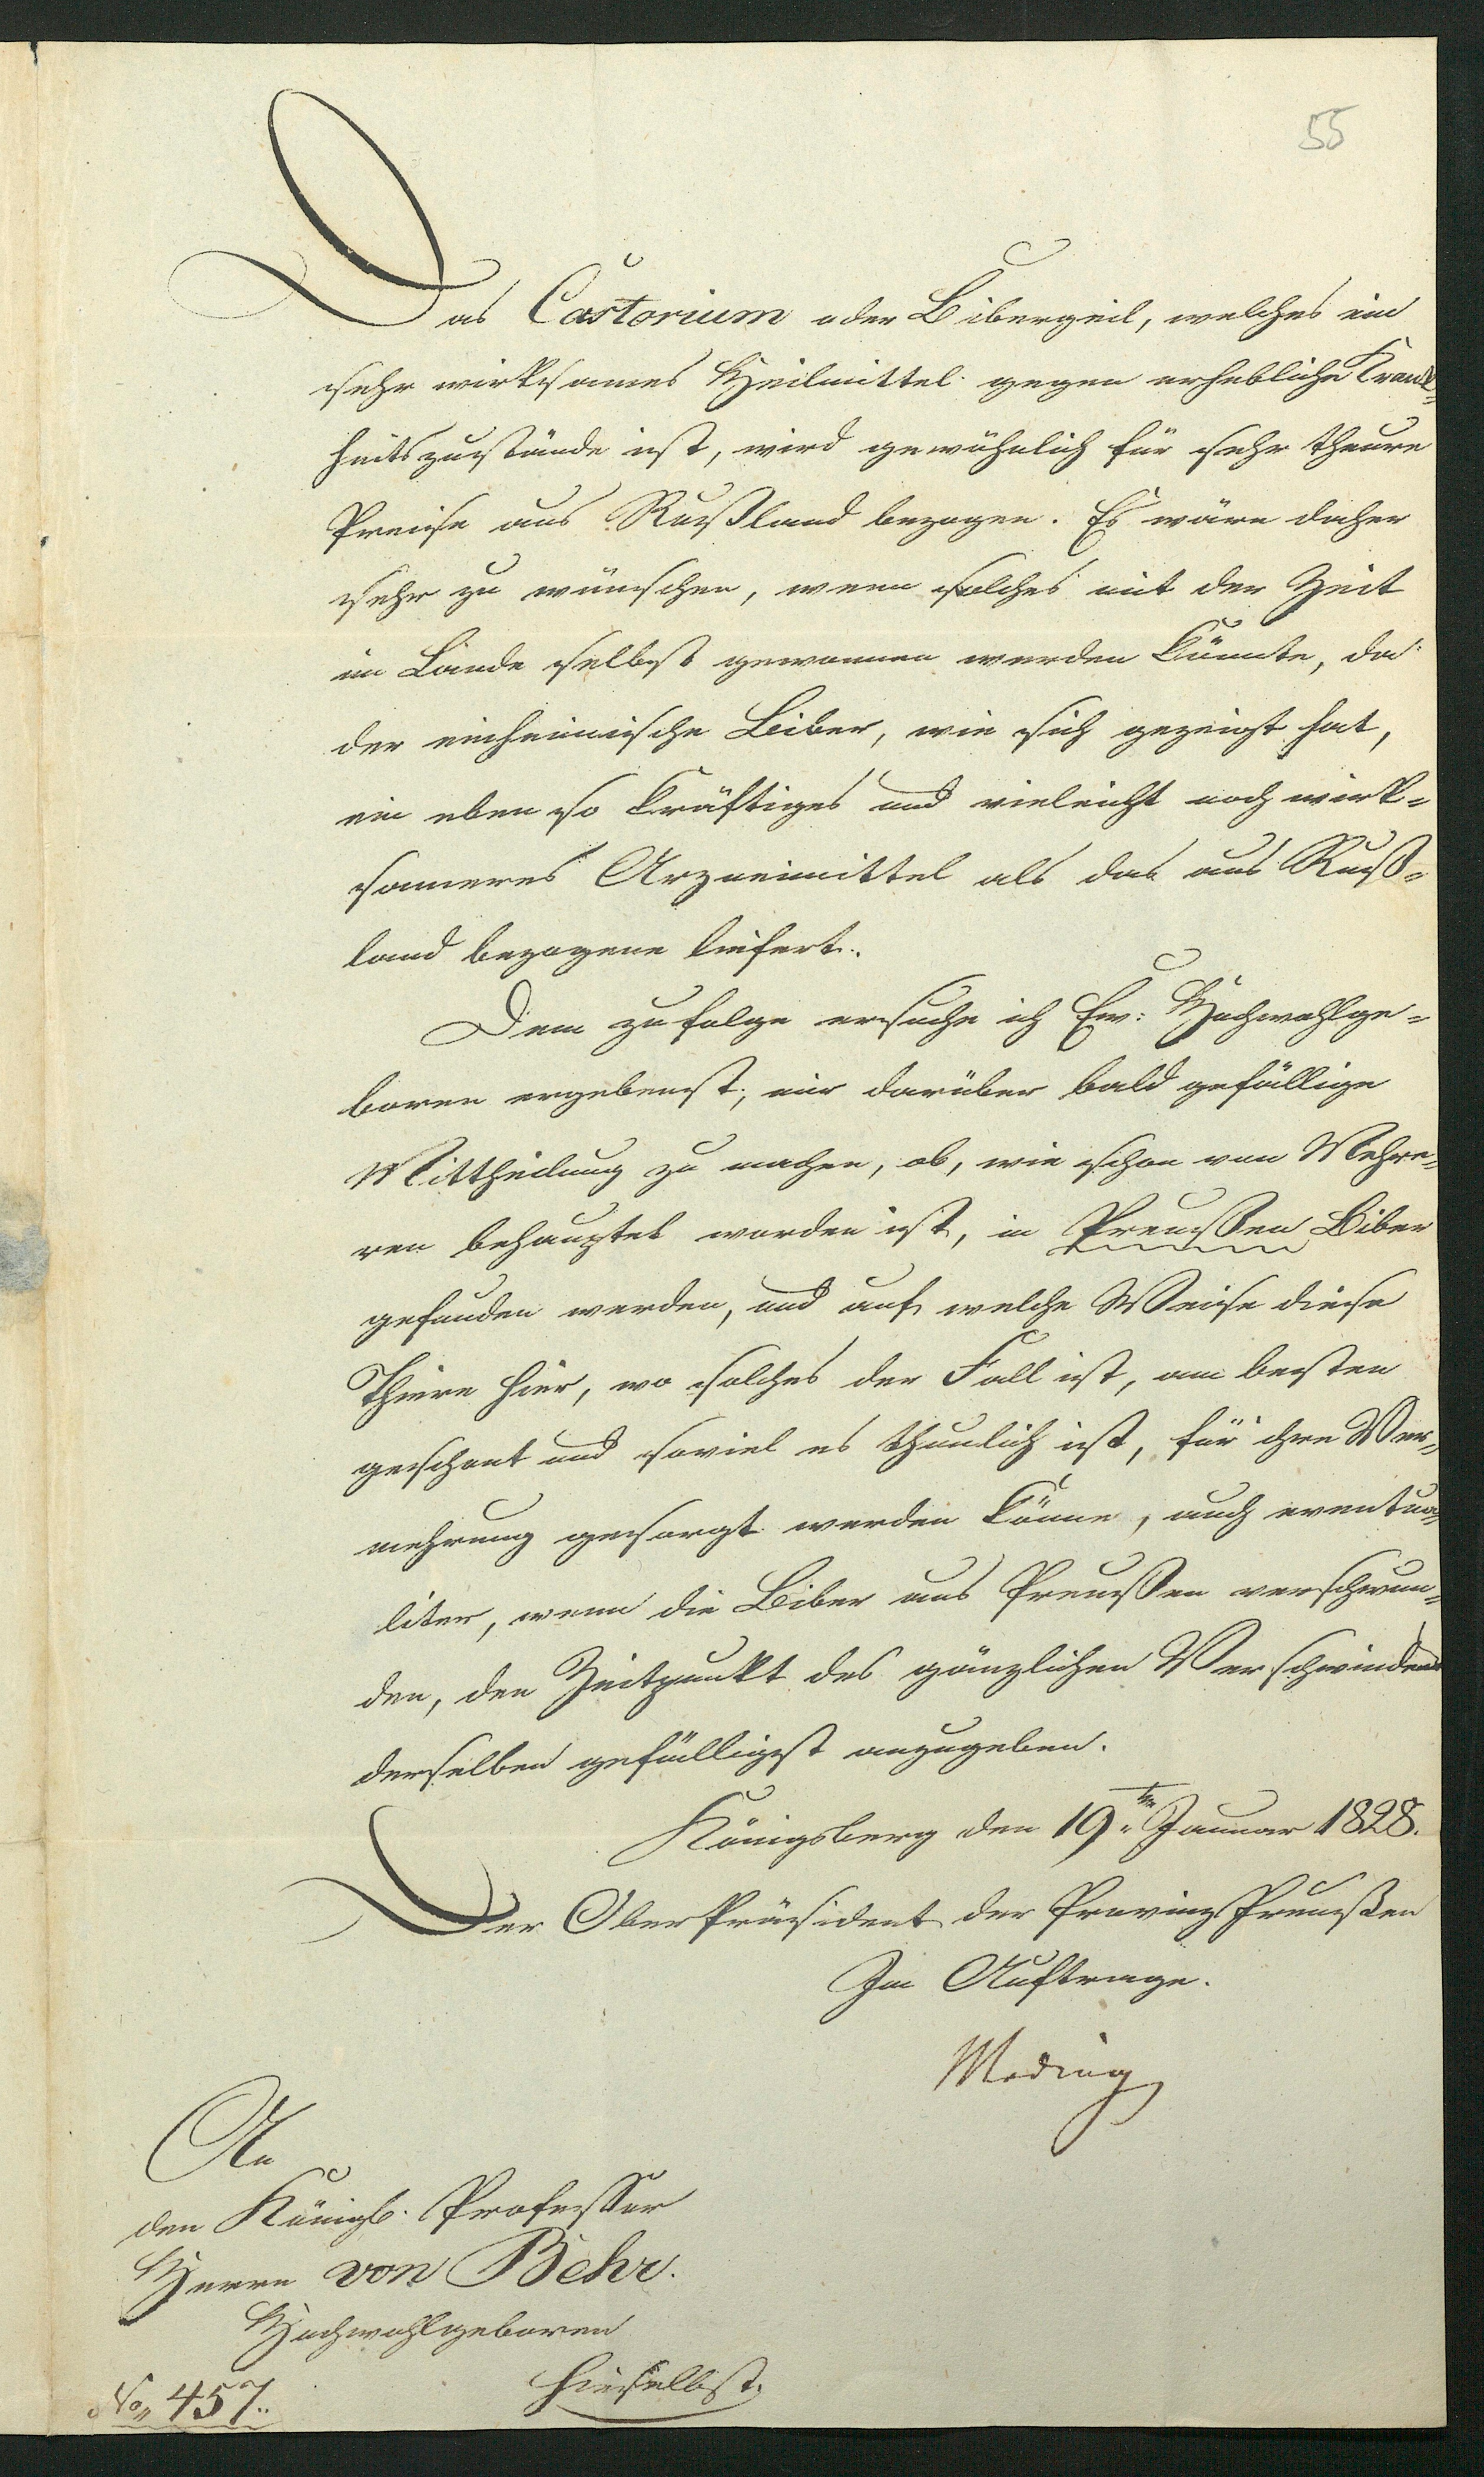 55
Das Castorium oder Bibergeil, welches ein
sehr wirksames Heilmittel gegen erhebliche Krank=
heitszustände ist, wird gewöhnlich für sehr theure
Preise aus Rußland bezogen. Es wäre daher
sehr zu wünschen, wenn solches mit der Zeit
im Lande selbst gewonnen werden könnte, da
der einheimische Biber, wie sich gezeigt hat,
ein eben so kräftiges und vieleicht noch wirk=
sameres Arzneimittel als das aus Ruß=
land bezogene liefert.
Dem zufolge ersuche ich Ew: Hochwohlge=
boren ergebenst, mir darüber bald gefällige
Mittheilung zu machen, ob, wie schon von Mehre=
ren behauptet worden ist, in Preußen Biber
gefunden werden, und auf welche Weise diese
Thiere hier, wo solches der Fall ist, am besten
geschont und soviel es thunlich ist, für ihre Ver=
mehrung gesorgt werden könne, auch eventua=
liter, wenn die Biber aus Preußen verschwun=
den, den Zeitpunkt des gänzlichen Verschwindens
derselben gefälligst anzugeben.
Königsberg den 19ten Januar 1828.
Der Ober Präsident der Provinz Preußen
Im Auftrage.
Meding
An
den Königl. Professor
Herrn von Behr.
Hochwohlgeboren
hieselbst.
No, 457.